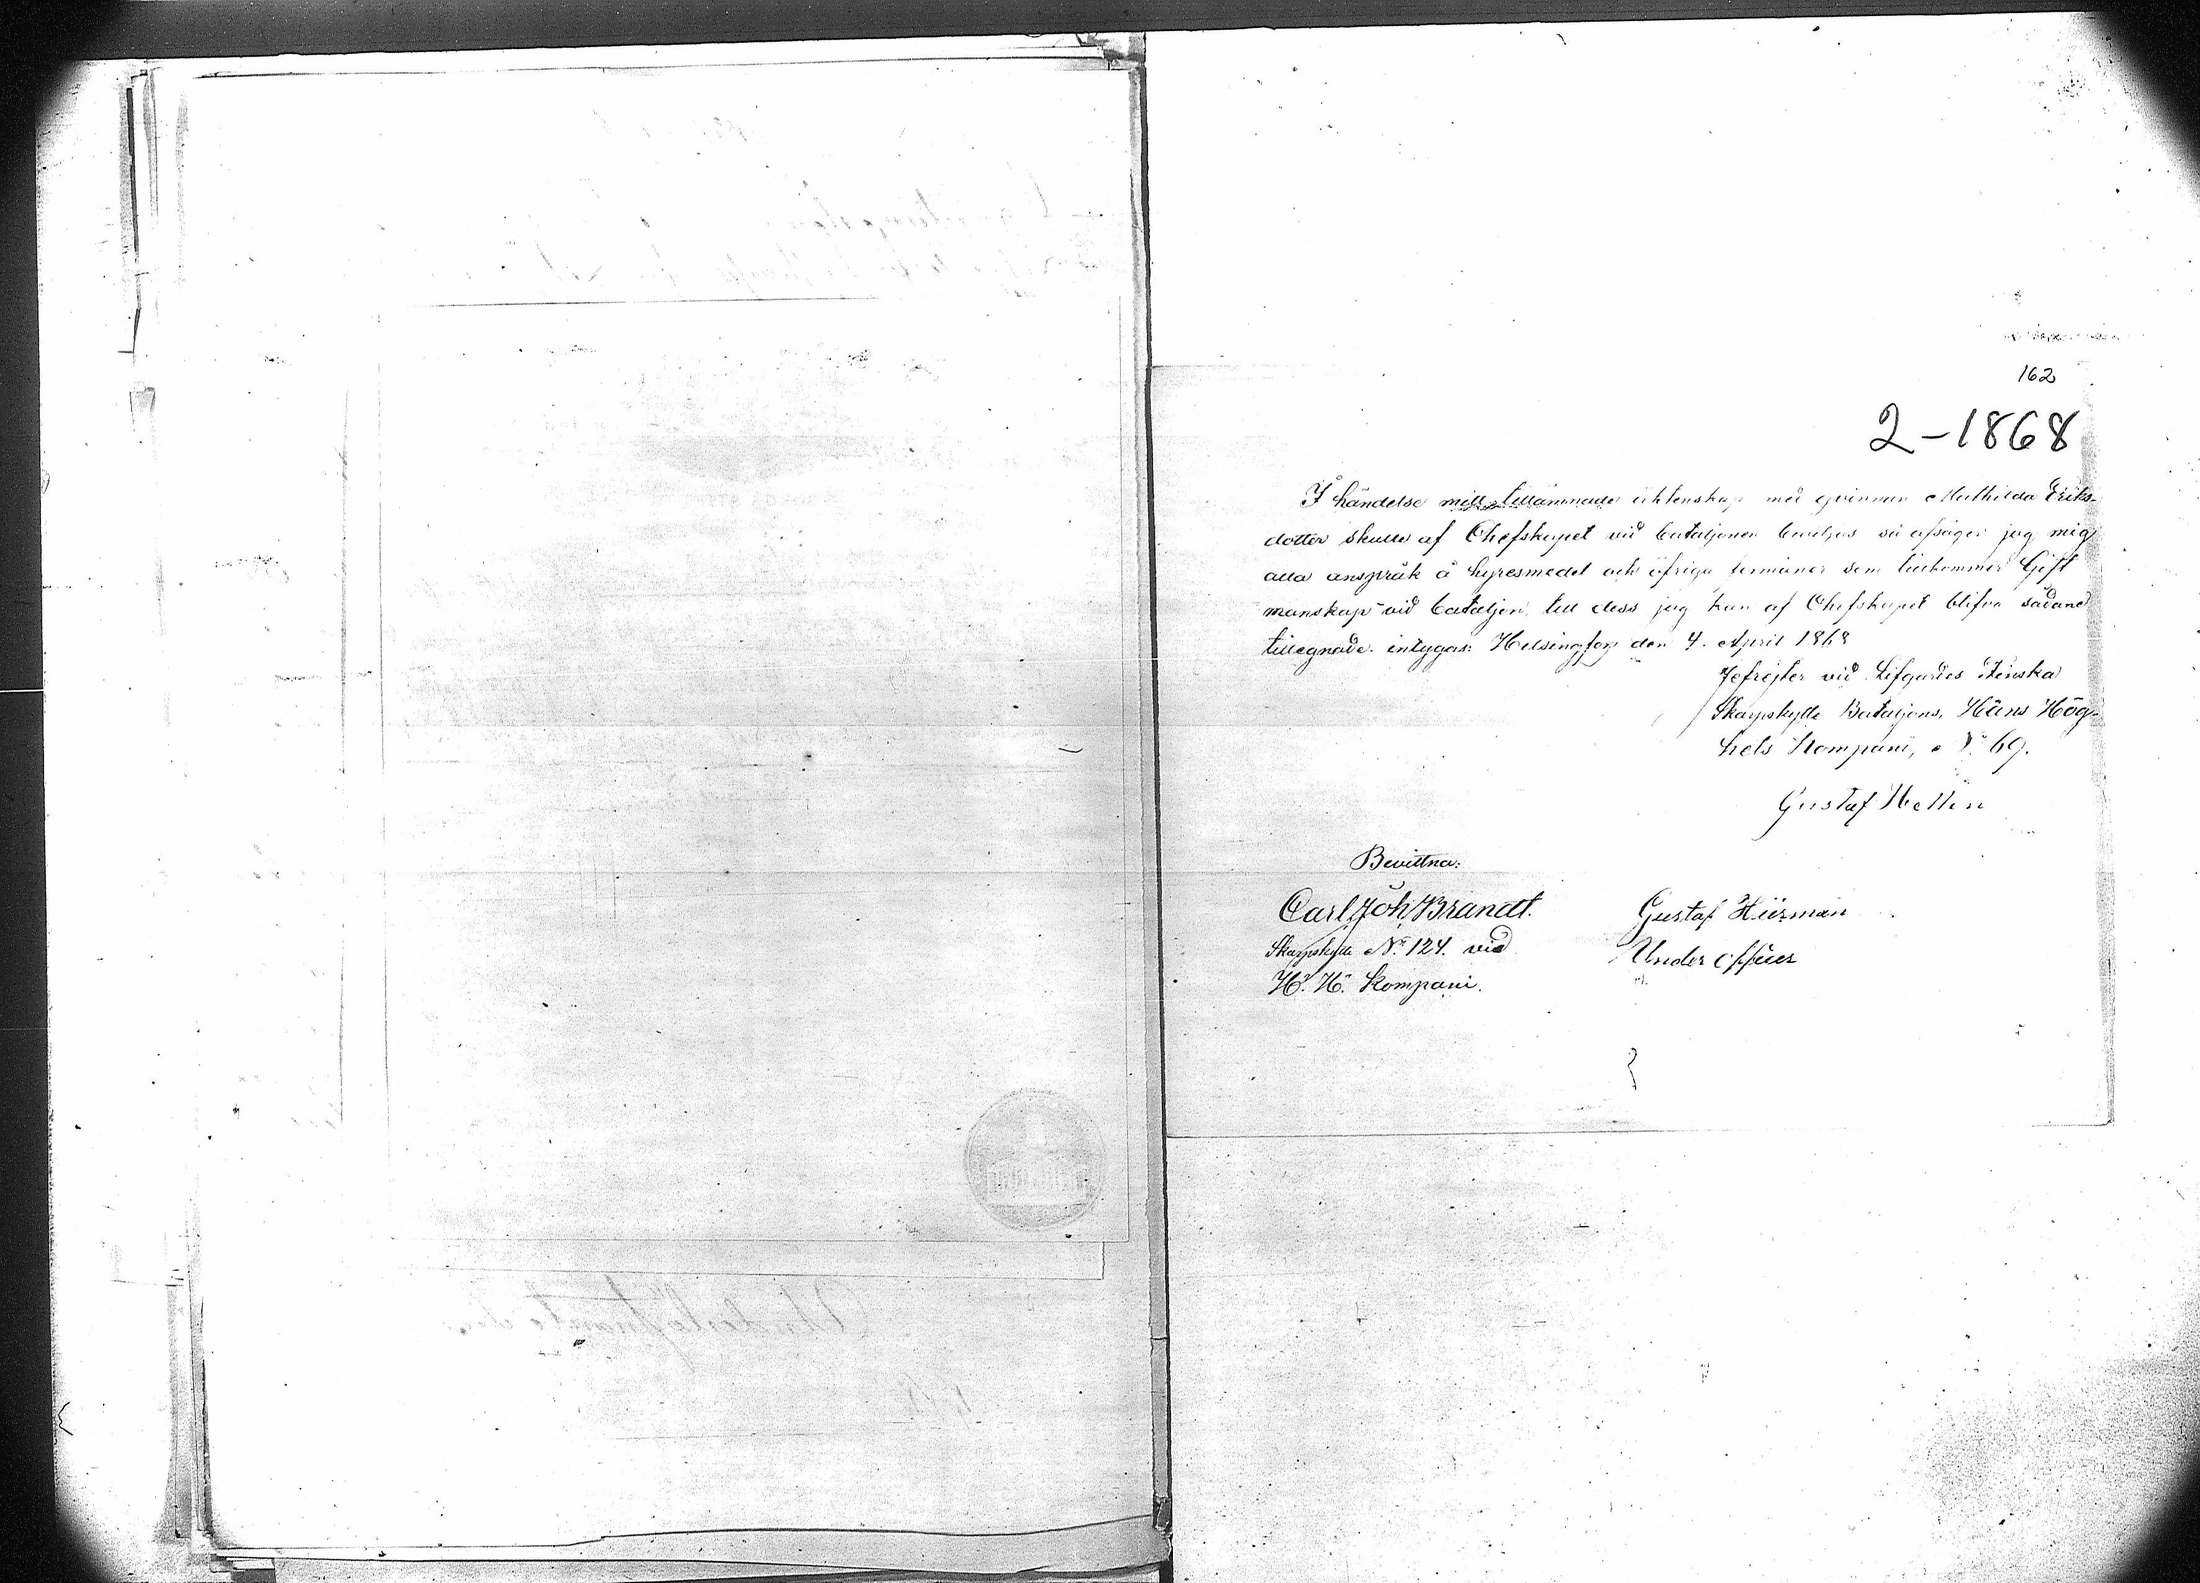 162
2-1868
I händelse mitt tillämnade äktenskap med qvinnan Mathilda Eriks-
dotter skulle af Chefskapet vid bataljonen beviljas så afsäger jag mig
alla anspråk å hyresmedel och öfriga förmåner som tillkommer Gift
manskap vid bataljon, till dess jag kan af Chefskapet blifva sådane
tillegnade. intygas: Helsingfors den 4. April 1868
Jefrejter vid Lifgardes Finska
Skarpskytte Bataljons, Hans Hög-
hets Kompani, No 69.
Gustaf
Bevittna:
Carl Joh Brandt.
Gustaf
Skarpskytte No 124. vid
Under officer
H. H. Kompani.